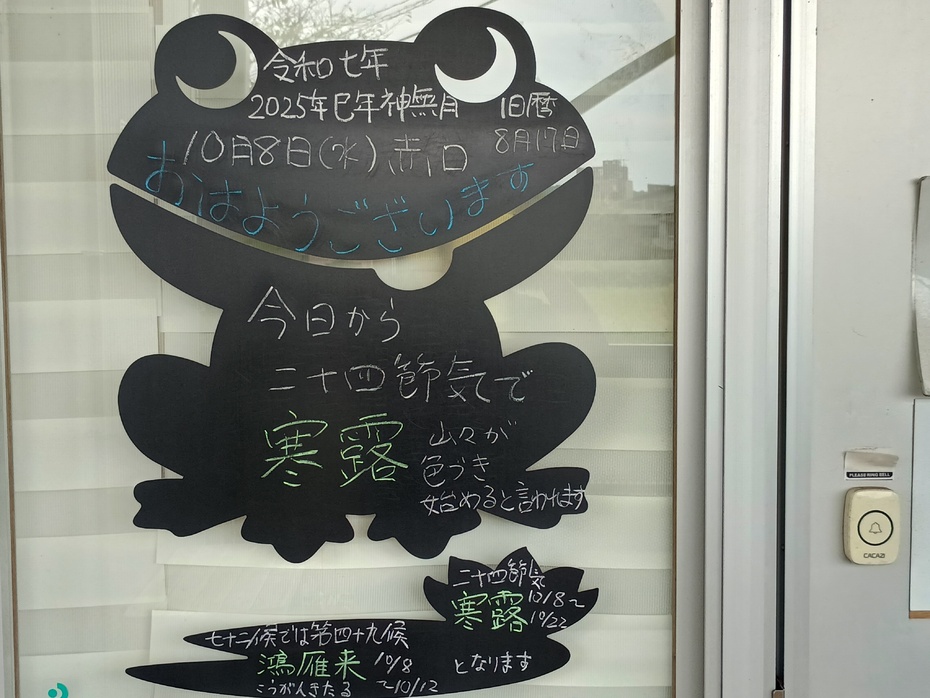 令和七年
2025年巳年神無月
旧暦
8月17日
10月8日(水)赤口
おはようございます
今日から
二十四節気で
寒露
山々が
色づき
始めると言われます
二十四節気
寒露
10/8〜
10/22
七十二候では第四十九候
鴻雁来
10/8
〜10/12
こうがんきたる
となります
PLEASE RING BELL
CACAZI